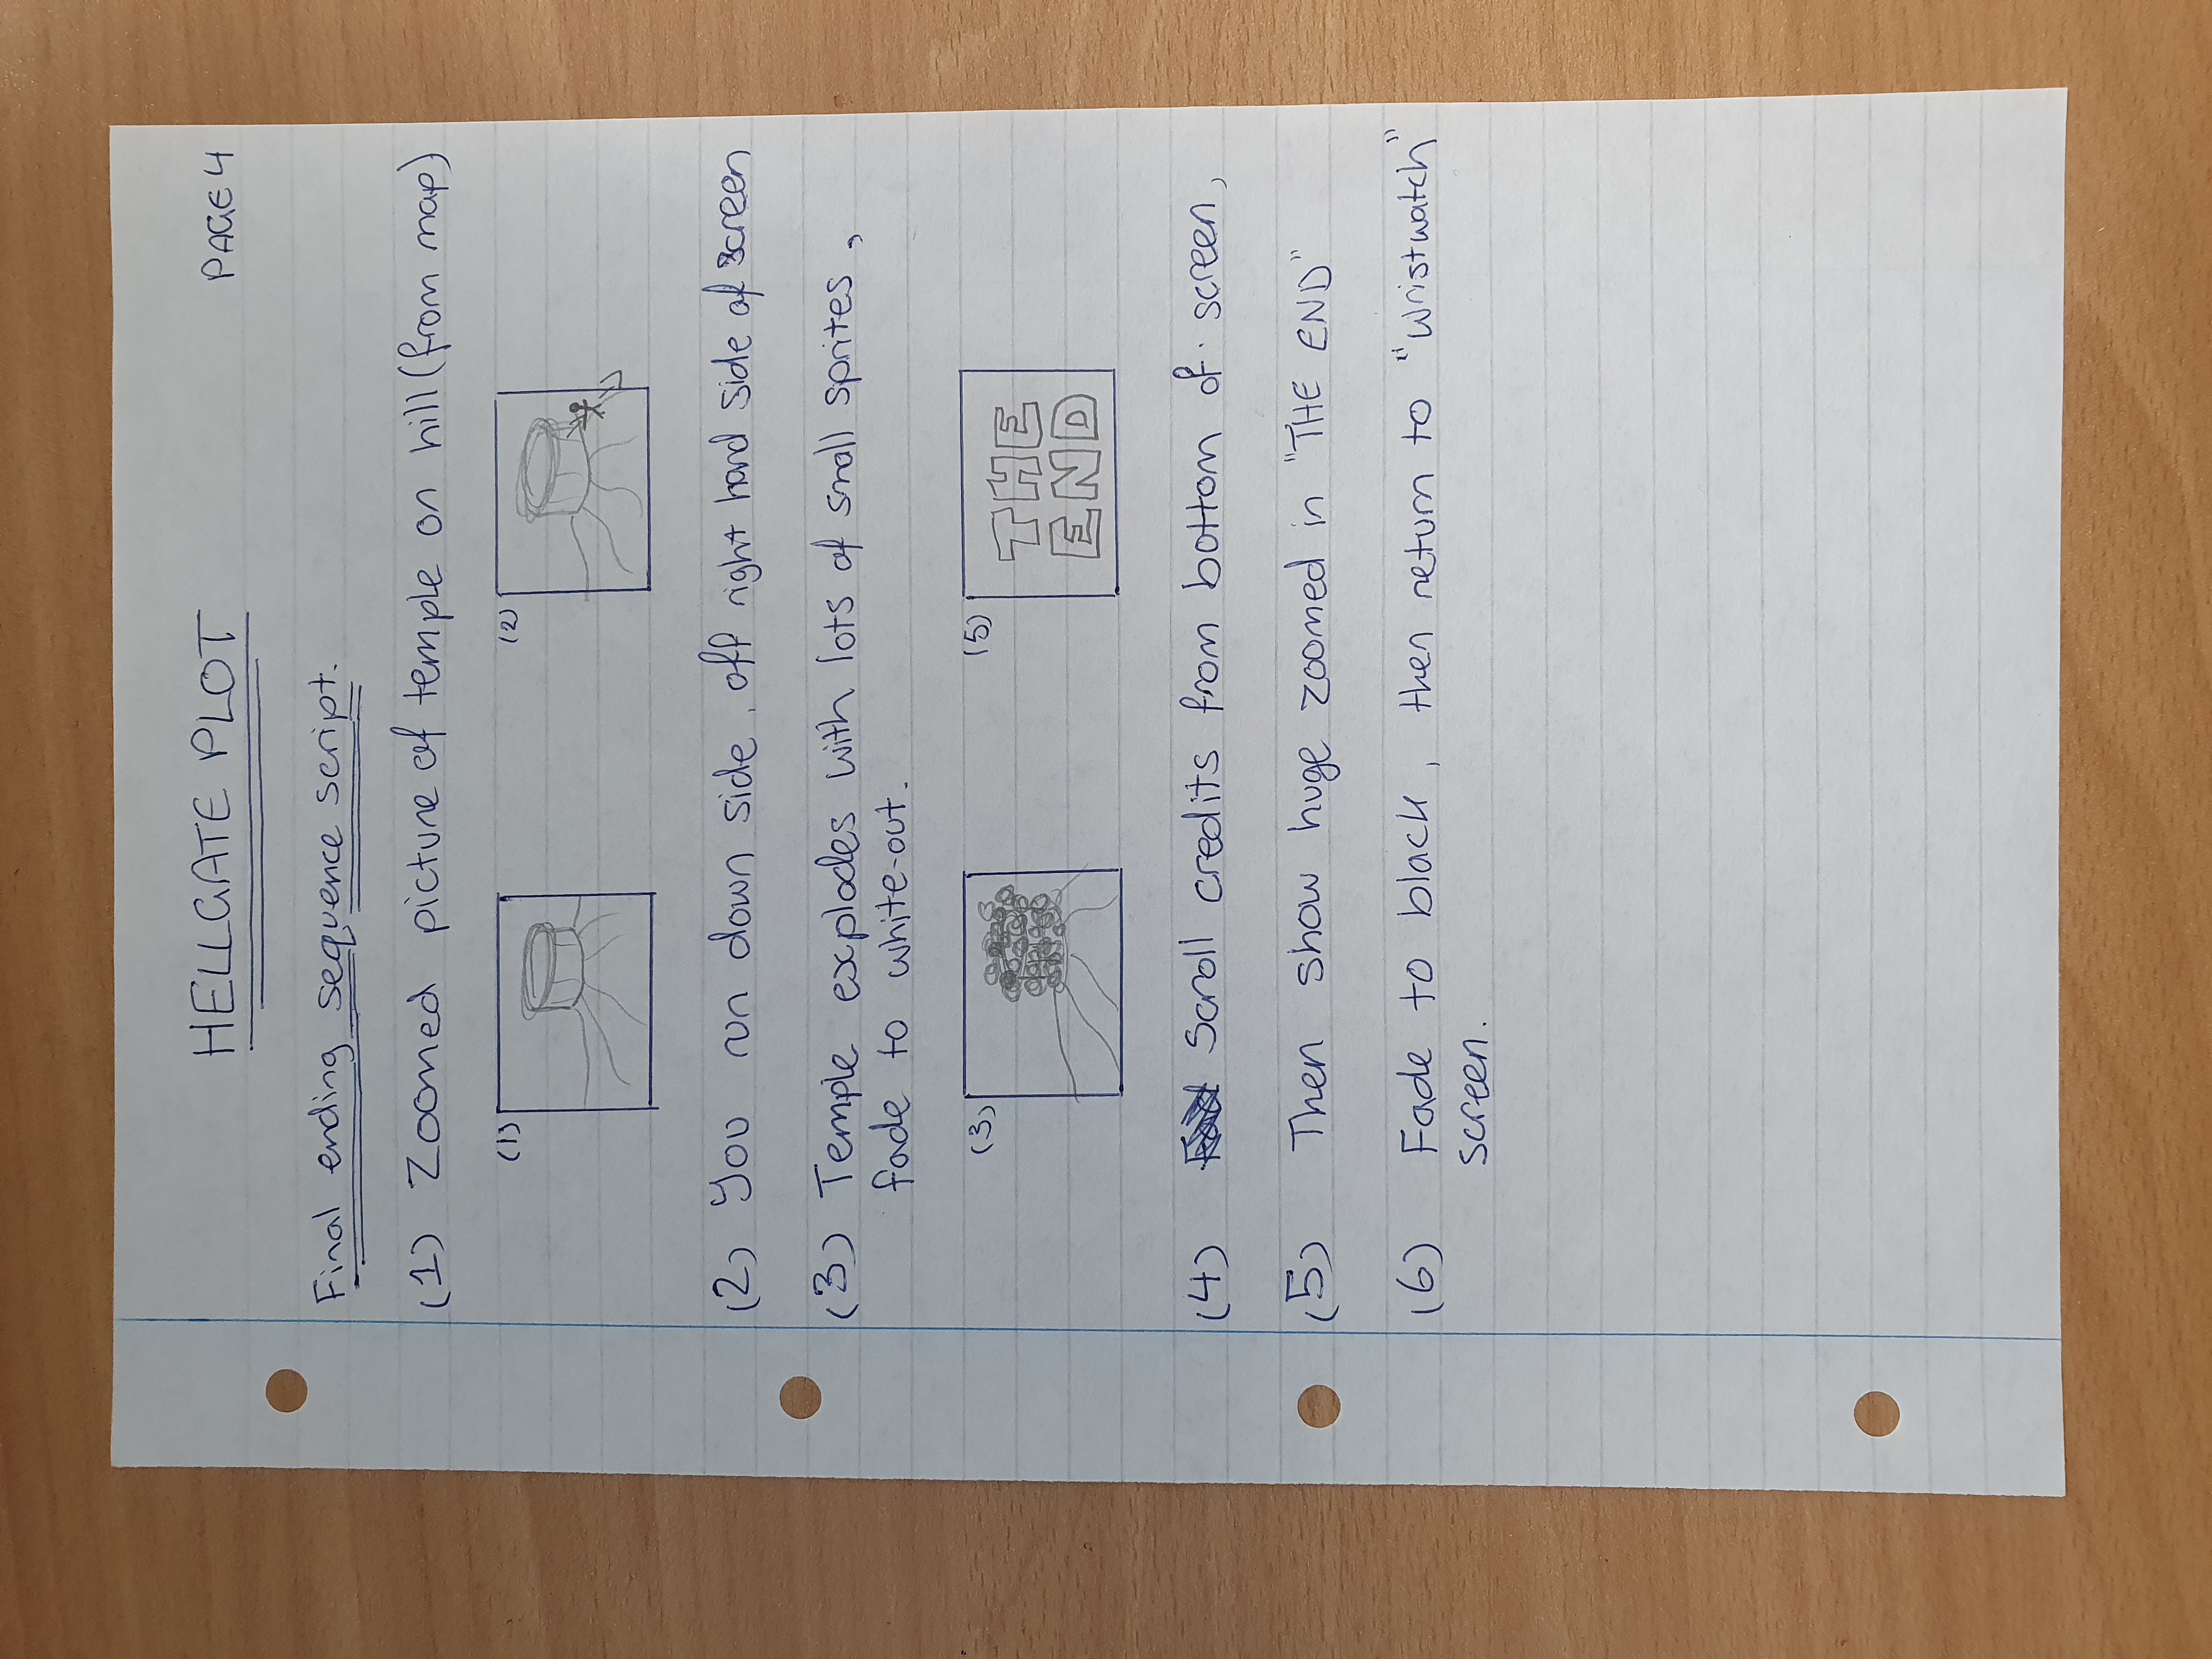 HELLGATE PLOT
PAGE 4
Final ending sequence script.
(1) Zoomed picture of temple on hill (from map)
(1)
(2)
(2) You run down side, off right hand side of screen
(3) Temple explodes with lots of small sprites,
fade to white-out.
(3)
(5)
THE
END
(4) Scroll credits from bottom of screen,
(5) Then show huge zoomed in "THE END"
(6) Fade to black, then return to "wristwatch"
screen.